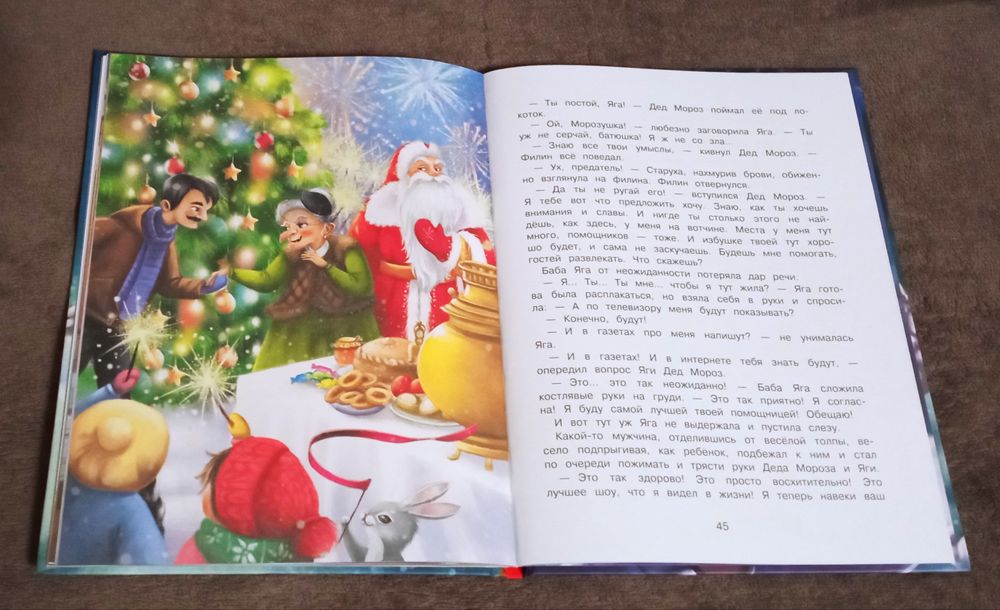 — Ты постой, Яга! — Дед Мороз поймал её под ло-
коток.
— Ой, Морозушка! — любезно заговорила Яга. — Ты
уж не серчай, батюшка! Я ж не со зла...
— Знаю все твои умыслы, — кивнул Дед Мороз. —
Филин всё поведал.
— Ух, предатель! — Старуха, нахмурив брови, обижен-
но взглянула на филина. Филин отвернулся.
— Да ты не ругай его! — вступился Дед Мороз. —
Я тебе вот что предложить хочу. Знаю, как ты хочешь
внимания и славы. И нигде ты столько этого не най-
дёшь, как здесь, у меня на вотчине. Места у меня тут
много, помощников — тоже. И избушке твоей тут хоро-
шо будет, и сама не заскучаешь. Будешь мне помогать,
гостей развлекать. Что скажешь?
Баба Яга от неожиданности потеряла дар речи.
— Я... Ты... Ты мне... чтобы я тут жила? — Яга гото-
ва была расплакаться, но взяла себя в руки и спроси-
ла: — А по телевизору меня будут показывать?
— Конечно, будут!
— И в газетах про меня напишут? — не унималась
Яга.
— И в газетах! И в интернете тебя знать будут, —
опередил вопрос Яги Дед Мороз.
— Это... это так неожиданно! — Баба Яга сложила
костлявые руки на груди. — Это так приятно! Я соглас-
на! Я буду самой лучшей твоей помощницей! Обещаю!
И вот тут уж Яга не выдержала и пустила слезу.
Какой-то мужчина, отделившись от весёлой толпы, ве-
село подпрыгивая, как ребенок, подбежал к ним и стал
по очереди пожимать и трясти руки Деда Мороза и Яги.
— Это так здорово! Это просто восхитительно! Это
лучшее шоу, что я видел в жизни! Я теперь навеки ваш
45